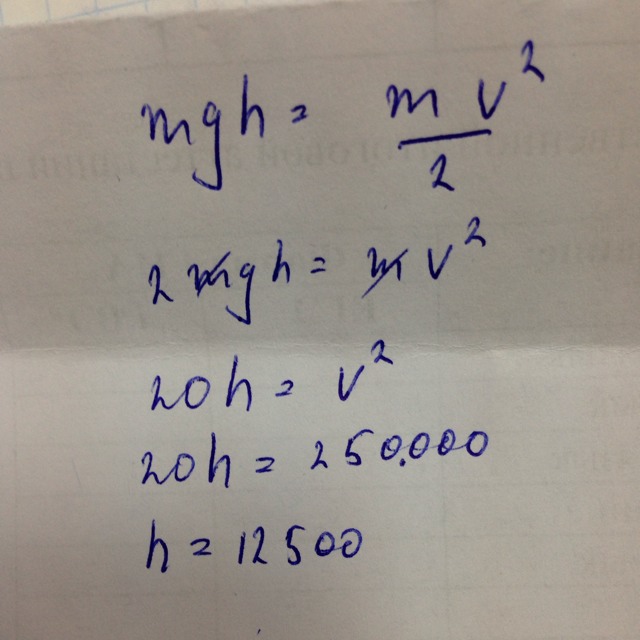 mgh = m v² / 2
2 mgh = m v²
20h = v²
20h = 250.000
h = 12500